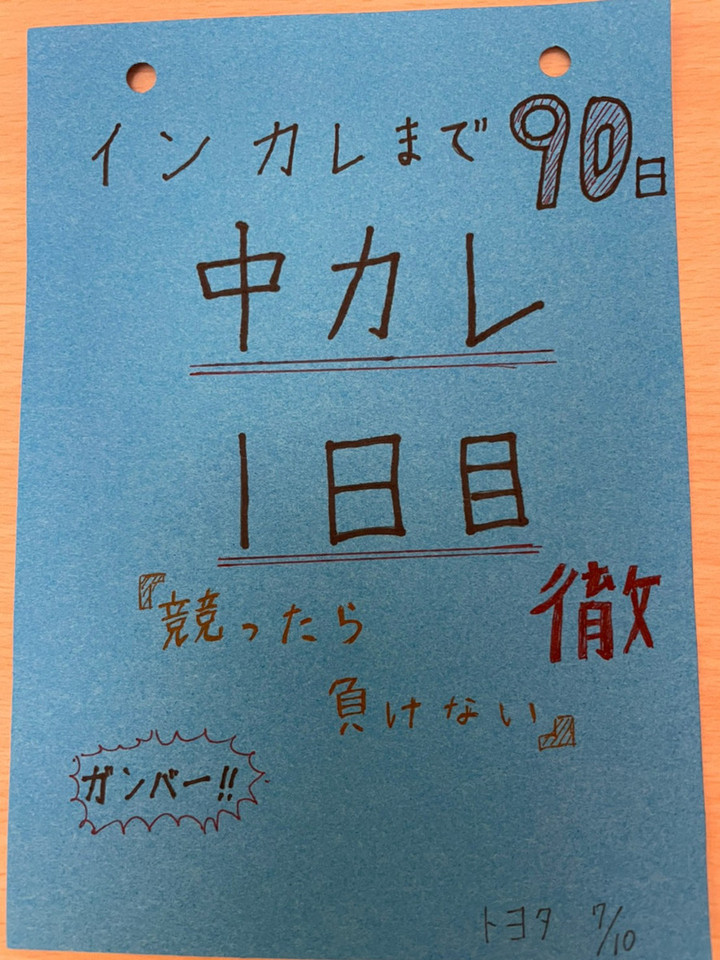 インカレまで90日
中カレ
1日目
徹
『競ったら
負けない』
ガンバー!!
トヨタ 7/10